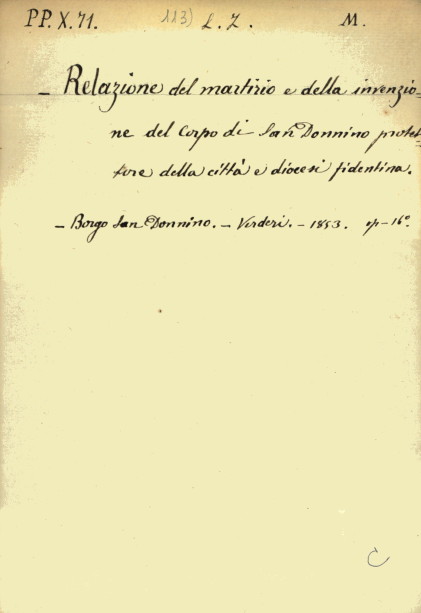 PP.X.71. 113) L.Z. M.
- Relazione del martirio e della invenzio-
ne del Corpo di San Donnino protet-
tore della città e diocesi fidentina.
- Borgo San Donnino. - Verderi. - 1853. op-16°.
C